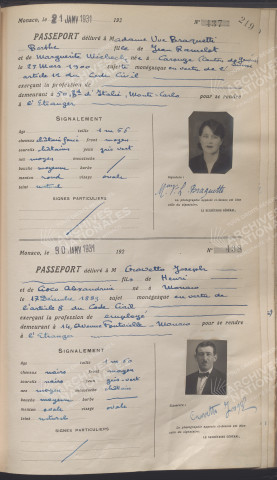 Monaco, le 21 JANV 1931 193 N° 157 219
PASSEPORT délivré à Madame Vve Braquetti
Berthe fille de Jean
et de Marguerite née à Carouge Canton de Genève
le 27 Mars 1900 sujette monégasque en vertu de l'
article 12 du Code Civil
exerçant la profession de
demeurant à 50, Bd d'Italie, Monte-Carlo pour se rendre
à l'Étranger
SIGNALEMENT
Age taille 1 m 56
cheveux châtain foncé front moyen
sourcils châtains yeux gris-vert
nez moyen menton
bouche moyenne barbe
menton rond visage ovale
teint naturel
SIGNES PARTICULIERS
Signature :
Braquetti
La photographie apposée ci-dessus est bien
celle du signataire.
LE SECRÉTAIRE GÉNÉRAL,
Monaco, le 30 JANV 1931 193 N° 158
PASSEPORT délivré à M Crovetto Joseph
fils de Henri
et de Alexandrine né à Monaco
le 17 Décembre sujet monégasque en vertu de
l'article 8 du Code Civil
exerçant la profession de employé
demeurant à 14, Avenue Fontvieille - Monaco pour se rendre
à l'Étranger
SIGNALEMENT
Age taille 1 m 50
cheveux noirs front moyen
sourcils noirs yeux gris-vert
nez moyen
bouche moyenne barbe
menton ovale visage ovale
teint naturel
SIGNES PARTICULIERS
Signature :
Crovetto Joseph
La photographie apposée ci-dessus est bien
celle du signataire.
LE SECRÉTAIRE GÉNÉRAL,